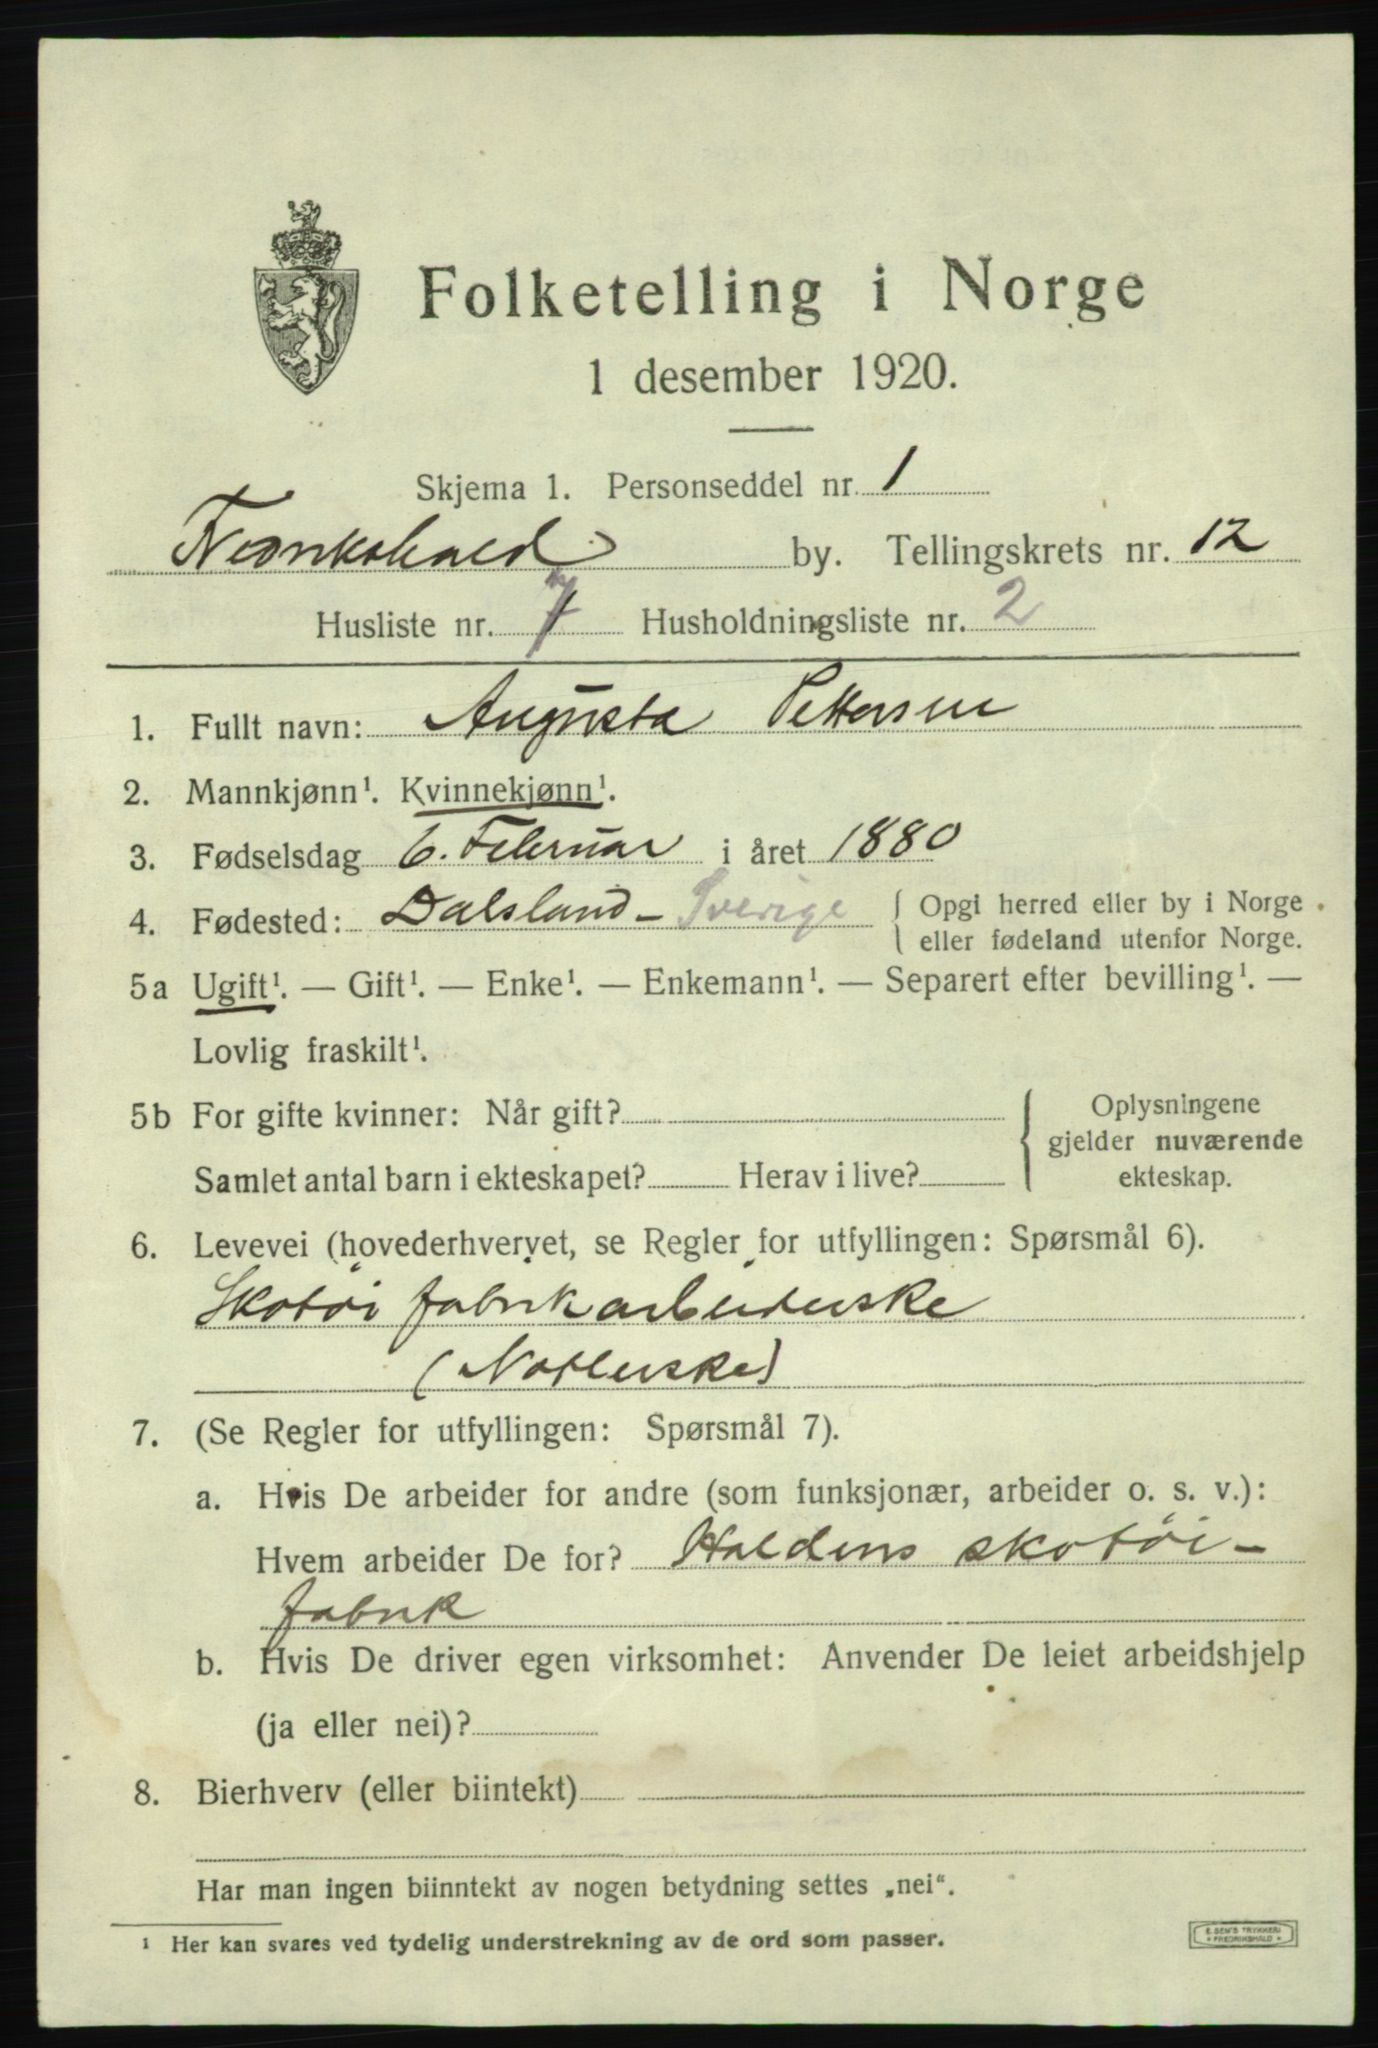 Folketelling i Norge
1 desember 1920.
Skjema 1. Personseddel nr. 1
Fredrikshald by. Tellingskrets nr. 12
Husliste nr. 7 Husholdningsliste nr. 2
1. Fullt navn: Augusta Pettersen
2. Mannkjønn¹. Kvinnekjønn¹.
3. Fødselsdag 6. Februar i året 1880
4. Fødested: Dalsland - Sverige { Opgi herred eller by i Norge
eller fødeland utenfor Norge.
5a Ugift¹. — Gift¹. — Enke¹. — Enkemann¹. — Separert efter bevilling¹. —
Lovlig fraskilt¹.
5b For gifte kvinner: Når gift? { Oplysningene
gjelder nuværende
Samlet antal barn i ekteskapet? Herav i live? ekteskap.
6. Levevei (hovederhvervet, se Regler for utfyllingen: Spørsmål 6).
Skotøi fabrikarbeiderske
(Natlerske)
7. (Se Regler for utfyllingen: Spørsmål 7).
a. Hvis De arbeider for andre (som funksjonær, arbeider o. s. v.):
Hvem arbeider De for? Haldens skotøi-
fabrik
b. Hvis De driver egen virksomhet: Anvender De leiet arbeidshjelp
(ja eller nei)?
8. Bierhverv (eller biintekt)
Har man ingen biinntekt av nogen betydning settes „nei“.
¹ Her kan svares ved tydelig understrekning av de ord som passer.
E. SEM'S TRYKKERI
* FREDRIKSHALD *